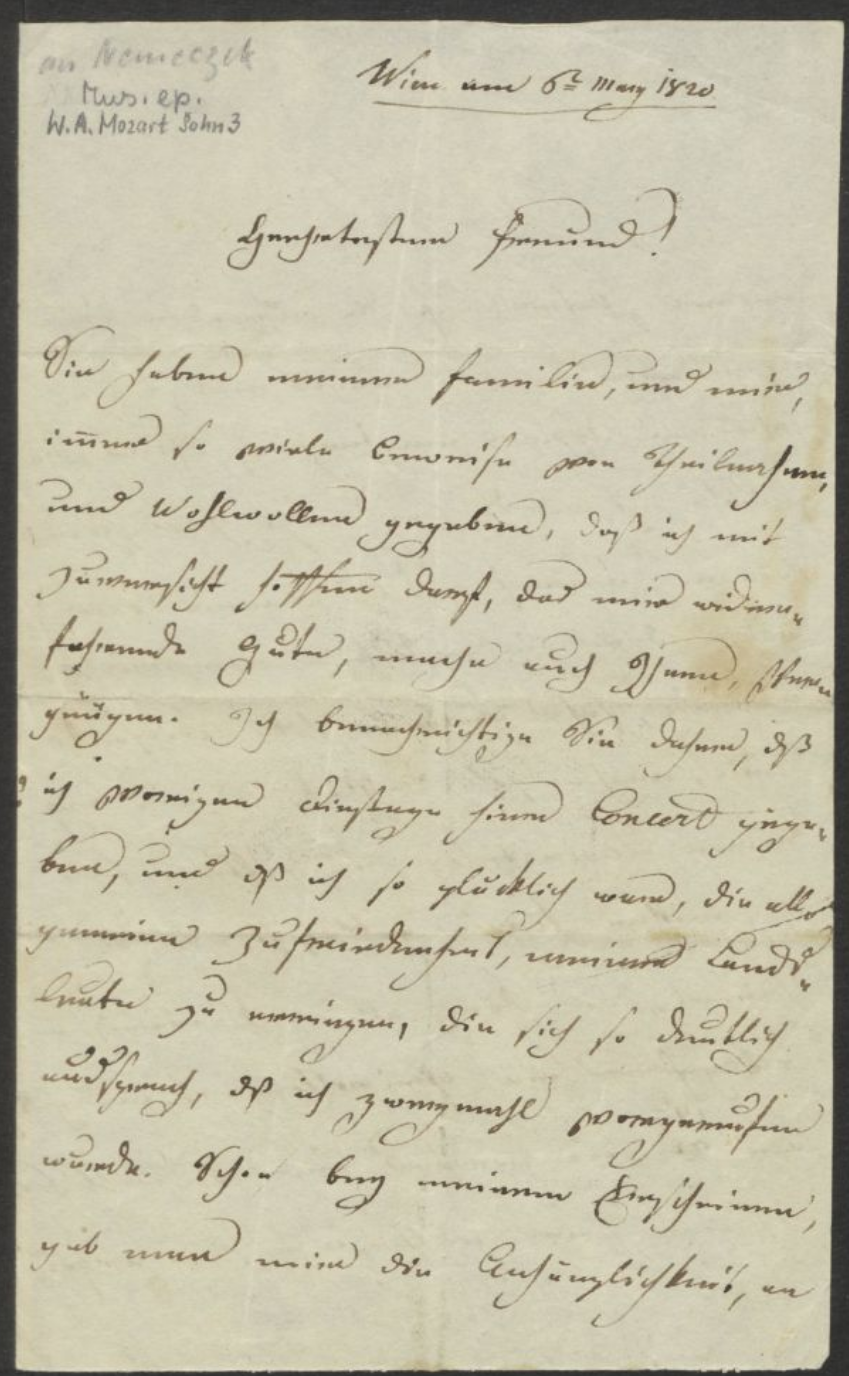 an Nemeczek
Mus. ep.
W. A. Mozart Sohn 3
Wien am 6t März 1820
Freund!
Sie haben meiner Familie, und mir,
immer so viele Beweise von Theilnahme,
und Wohlwollen gegeben, daß ich mit
Zuversicht hoffen darf, das mir wider„
fahrende Gute, mache auch Ihnen, Ver„
gnügen. Ich benachrichtige Sie daher, dß
ich vorigen Dienstage hier Concert gege„
ben, und dß ich so glücklich war, die all„
gemeine Zufriedenheit, meiner Lands„
leute zu erringen, die sich so deutlich
aussprach, dß ich zweymahl vorgerufen
wurde. Schon bey meinem Erscheinen,
gab man mir die Anhänglichkeit, an